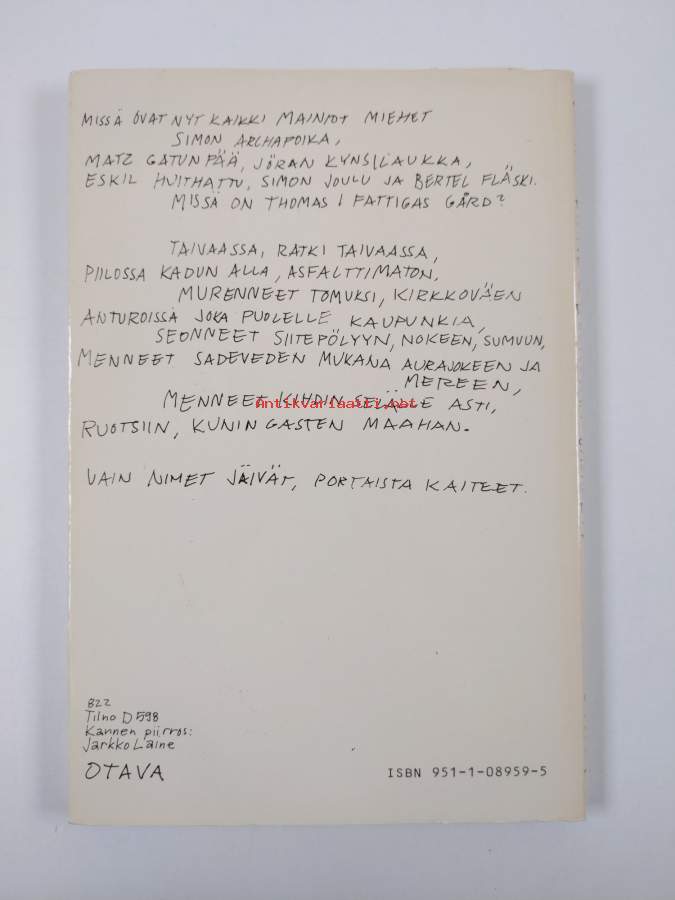 MISSÄ OVAT NYT KAIKKI MAINIOT MIEHET
SIMON ARCHAPOIKA,
MATZ GATUN PÄÄ, JÖRAN KYNSILAUKKA,
ESKIL HVITHATTU, SIMON JOULU JA BERTEL FLÄSKI.
MISSÄ ON THOMAS I FATTIGAS GÅRD?
TAIVAASSA, RATKI TAIVAASSA,
PIILOSSA KADUN ALLA, ASFALTTIMATON,
MURENNEET TOMUKSI, KIRKKOVÄEN
ANTUROISSA JOKA PUOLELLE KAUPUNKIA,
SEONNEET SIITEPÖLYYN, NOKEEN, SUMUUN,
MENNEET SADEVEDEN MUKANA AURAJOKEEN JA
MEREEN,
MENNEET KIHDIN SELÄLLE ASTI,
antikvariaatti.net
RUOTSIIN, KUNINGASTEN MAAHAN.
VAIN NIMET JÄIVÄT, PORTAISTA KAITEET.
822
Tilno D 598
Kannen piirros:
Jarkko Laine
OTAVA
ISBN 951-1-08959-5